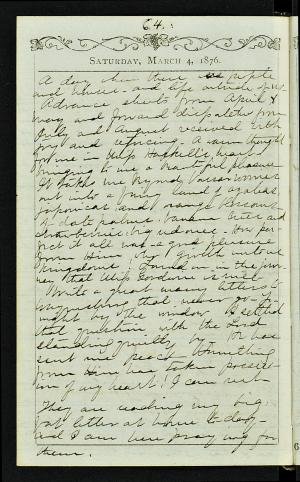 64.
SATURDAY, MARCH 4, 1876.
A day when there are people
and house - and life outside of us.
Advance sheets from April &
May and forward dispatches from
July and August received with
joy and rejoicing. A warm thought
for me in Miss Haskell's heart
bringing to me a beautiful pleasure
It takes me beyond
out into a land of azaleas
japonicas and orange blossoms
A date palm. banana trees and
strawberries big indoors. How per-
fect it all was - a good pleasure
from Him. My growth into the
kingdom. I found in the jour-
ney that
Write a great many letters &
anything that never go. I
by the window I settled
that question with the Lord
standing quietly by. He has
sent me peace. Something
from Him has taken posses-
sion of my heart! I can rest -
They are reading my big,
fat letter at home to-day -
and I am here praying for
them.